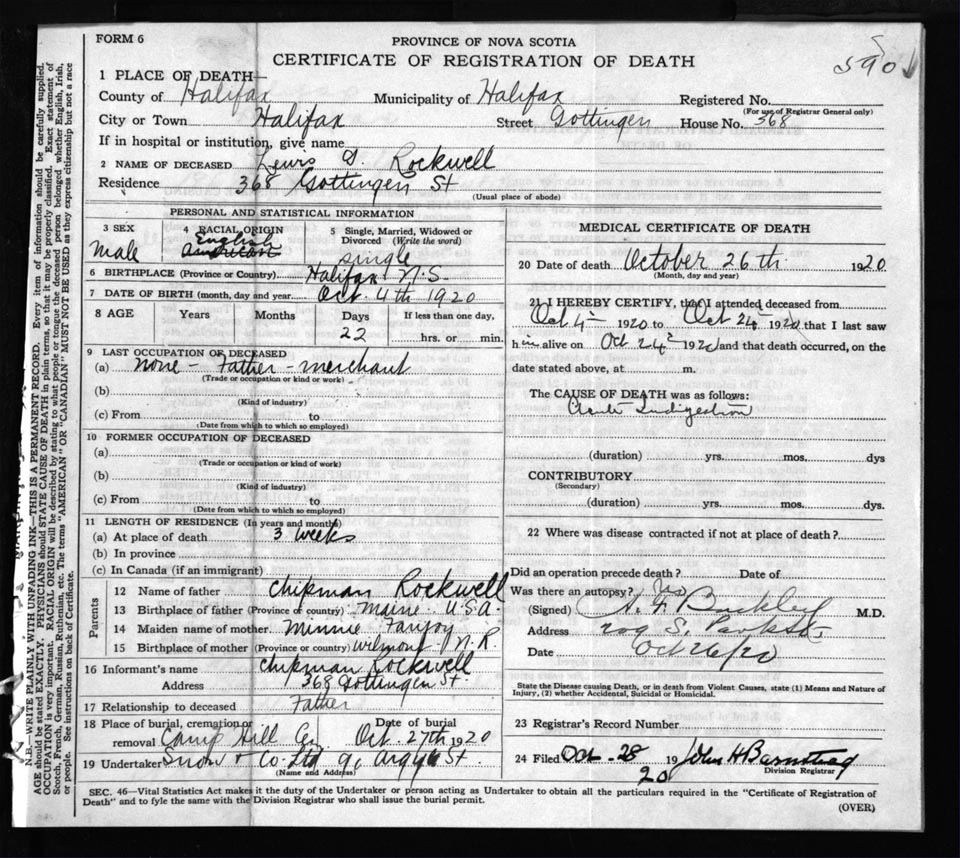 FORM 6
PROVINCE OF NOVA SCOTIA
CERTIFICATE OF REGISTRATION OF DEATH
1 PLACE OF DEATH—
County of Halifax Municipality of Halifax Registered No.
(For use of Registrar General only)
City or Town Halifax Street Gottingen House No. 368
If in hospital or institution, give name
2 NAME OF DECEASED Lewis D. Rockwell
Residence 368 Gottingen St
(Usual place of abode)
PERSONAL AND STATISTICAL INFORMATION
3 SEX
Male
4 RACIAL ORIGIN
English
American
5 Single, Married, Widowed or Divorced (Write the word)
single
6 BIRTHPLACE (Province or Country) Halifax N.S.
7 DATE OF BIRTH (month, day and year) Oct. 4th 1920
8 AGE Years Months Days If less than one day,
22 hrs. or min.
9 LAST OCCUPATION OF DECEASED
(a) none - Father - merchant
(Trade or occupation or kind of work)
(b)
(Kind of industry)
(c) From to
(Date from which to which so employed)
10 FORMER OCCUPATION OF DECEASED
(a)
(Trade or occupation or kind of work)
(b)
(Kind of industry)
(c) From to
(Date from which to which so employed)
11 LENGTH OF RESIDENCE (In years and months)
(a) At place of death 3 weeks
(b) In province
(c) In Canada (if an immigrant)
Parents
12 Name of father Chipman Rockwell
13 Birthplace of father (Province or country) Maine U.S.A.
14 Maiden name of mother Minnie Fanjoy
15 Birthplace of mother (Province or country) Wilmont N.B.
16 Informant's name Chipman Rockwell
Address 368 Gottingen St.
17 Relationship to deceased Father
18 Place of burial, cremation or removal Camp Hill Date of burial Oct. 27th 1920
19 Undertaker Snow & Co. Ltd 90 Argyle St.
(Name and Address)
MEDICAL CERTIFICATE OF DEATH
20 Date of death October 26th 1920
(Month, day and year)
21 I HEREBY CERTIFY, that I attended deceased from
Oct 4th 1920 to Oct 24th 1920 that I last saw
him alive on Oct 24th 1920 and that death occurred, on the
date stated above, at m.
The CAUSE OF DEATH was as follows:
Acute Indigestion
(duration) yrs. mos. dys
CONTRIBUTORY
(Secondary)
(duration) yrs. mos. dys.
22 Where was disease contracted if not at place of death?
Did an operation precede death? Date of
Was there an autopsy? No
(Signed) A. F. Buckley M.D.
Address S. Park St.
Date Oct 26/20
State the Disease causing Death, or in death from Violent Causes, state (1) Means and Nature of Injury, (2) whether Accidental, Suicidal or Homicidal.
23 Registrar's Record Number
24 Filed Oct. 28 19 20 John H Barnstead
Division Registrar
SEC. 46—Vital Statistics Act makes it the duty of the Undertaker or person acting as Undertaker to obtain all the particulars required in the "Certificate of Registration of
Death" and to fyle the same with the Division Registrar who shall issue the burial permit.
(OVER)
N.B.—WRITE PLAINLY WITH UNFADING INK—THIS IS A PERMANENT RECORD. Every item of information should be carefully supplied.
AGE should be stated EXACTLY. PHYSICIANS should STATE CAUSE OF DEATH in plain terms, so that it may be properly classified. Exact statement of
OCCUPATION is very important. RACIAL ORIGIN will be described by stating to what people or tongue the deceased person belonged whether English, Irish,
Scotch, French, German, Russian, Ruthenian, etc. The terms "AMERICAN" OR "CANADIAN" MUST NOT BE USED as they express citizenship but not a race
or people. See instructions on back of Certificate.